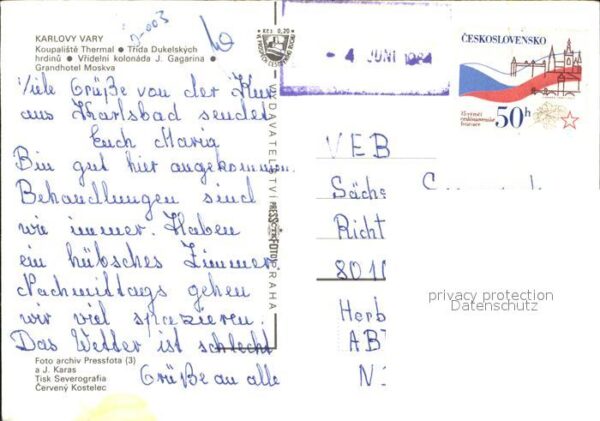 KARLOVY VARY
Koupaliště Thermal ● Třída Dukelských
hrdinů ● Vřídelní kolonáda J. Gagarina ●
Grandhotel Moskva
Kčs 0,20
Viele Grüße von der Kur
aus Karlsbad sendet
Euch Maria
Bin gut hier angekommen.
Behandlungen sind
wie immer. Haben
ein hübsches Zimmer
Nachmittags gehen
wir viel spazieren.
Das Wetter ist schlecht
Grüße an alle
Foto archiv Pressfota (3)
a J. Karas
Tisk Severografia
Červený Kostelec
VYDAVATELSTVÍ PRESSFOTO PRAHA
- 4. JUNI 1984
ČESKOSLOVENSKO
50h
VEB
Sächs
Richt
801
Herb
AB
N
privacy protection
Datenschutz